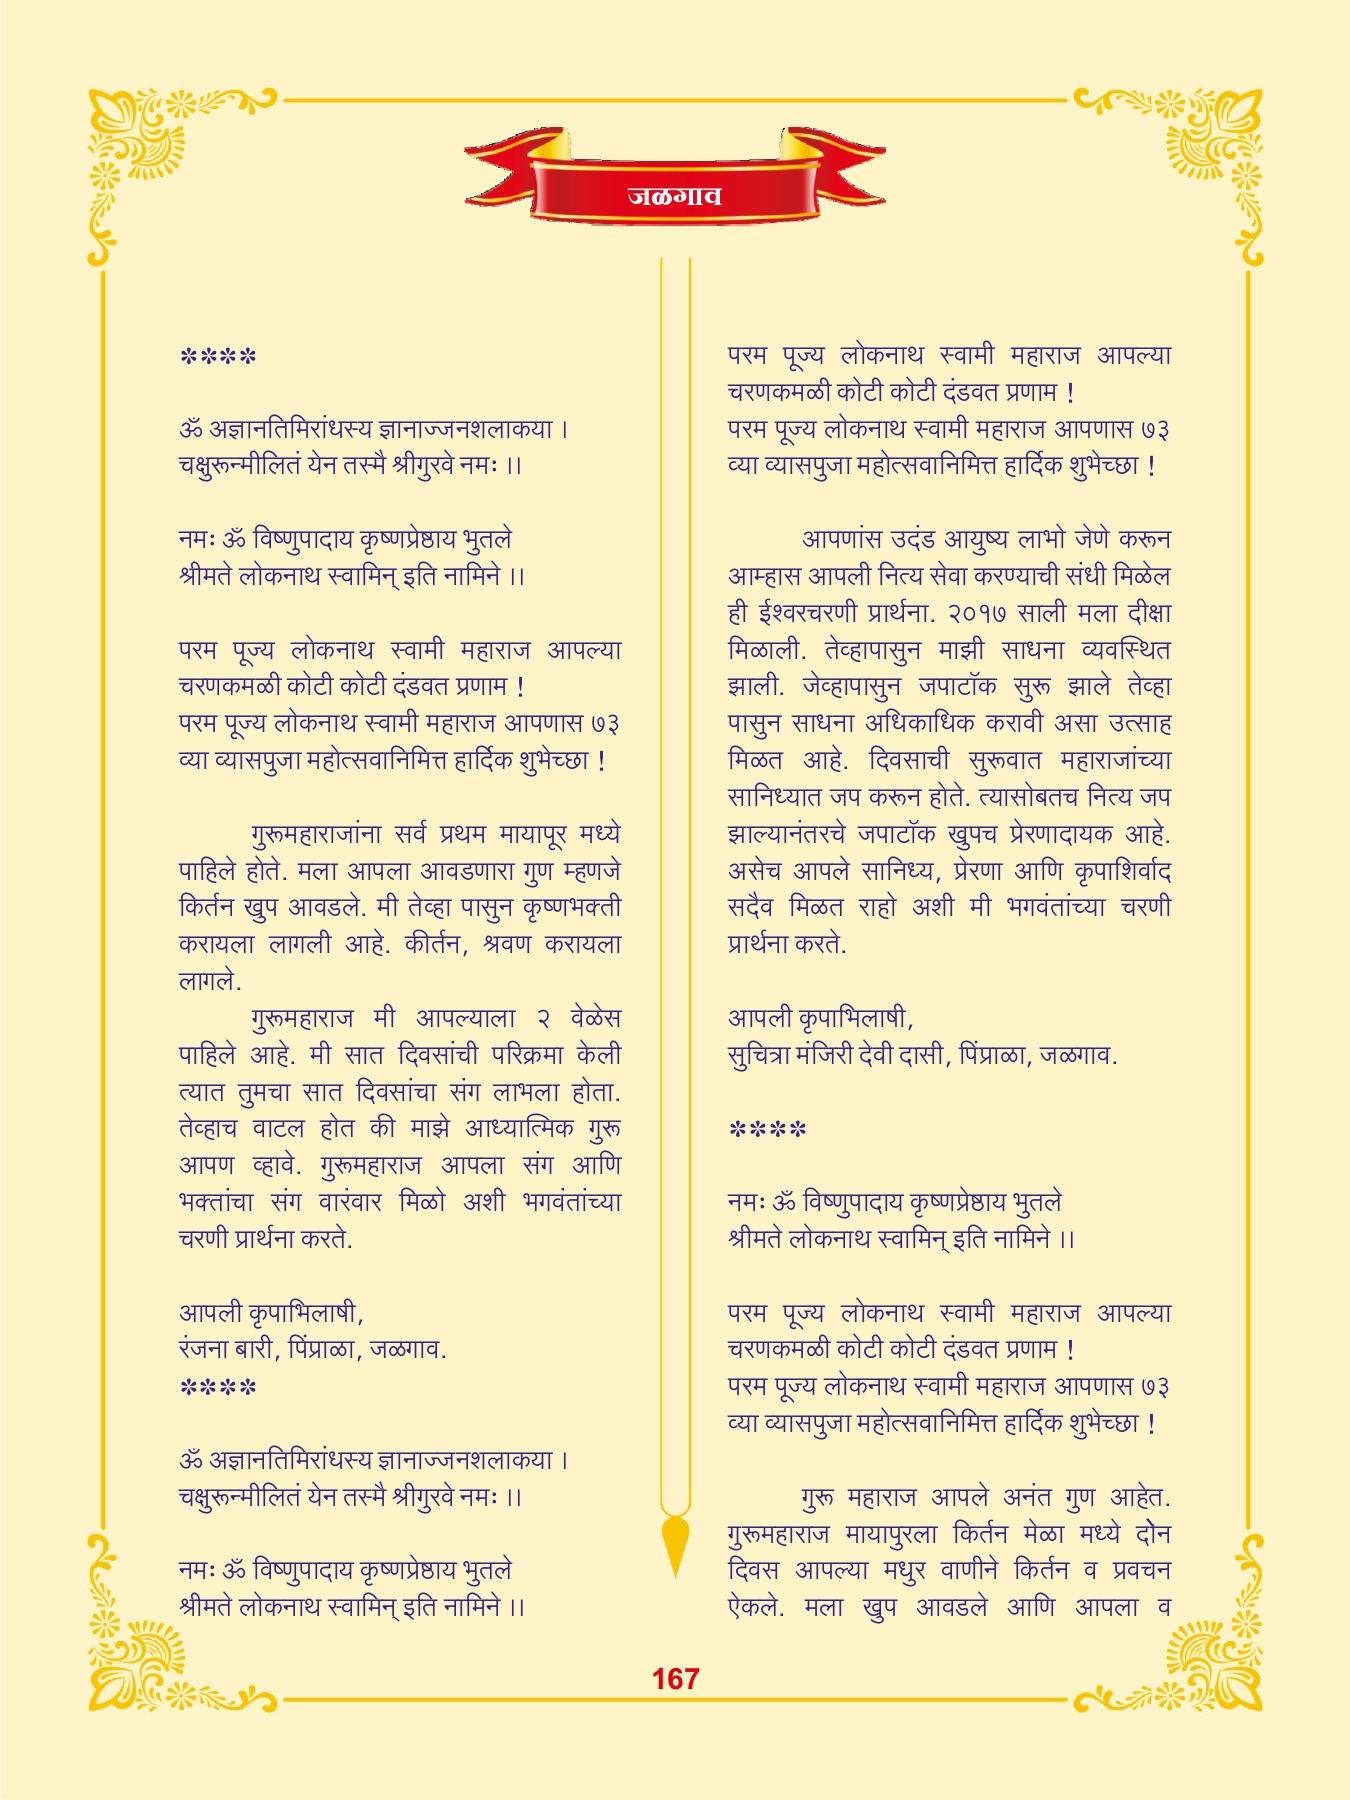 जळगाव
****
ॐ अज्ञानतिमिरांधस्य ज्ञानाज्जनशलाकया ।
चक्षुरून्मीलितं येन तस्मै श्रीगुरवे नमः ।।
नमः ॐ विष्णुपादाय कृष्णप्रेष्ठाय भुतले
श्रीमते लोकनाथ स्वामिन् इति नामिने ।।
परम पूज्य लोकनाथ स्वामी महाराज आपल्या
चरणकमळी कोटी कोटी दंडवत प्रणाम !
परम पूज्य लोकनाथ स्वामी महाराज आपणास ७३
व्या व्यासपुजा महोत्सवानिमित्त हार्दिक शुभेच्छा !
गुरूमहाराजांना सर्व प्रथम मायापूर मध्ये
पाहिले होते. मला आपला आवडणारा गुण म्हणजे
किर्तन खुप आवडले. मी तेव्हा पासुन कृष्णभक्ती
करायला लागली आहे. कीर्तन, श्रवण करायला
लागले.
गुरूमहाराज मी आपल्याला २ वेळेस
पाहिले आहे. मी सात दिवसांची परिक्रमा केली
त्यात तुमचा सात दिवसांचा संग लाभला होता.
तेव्हाच वाटल होत की माझे आध्यात्मिक गुरू
आपण व्हावे. गुरूमहाराज आपला संग आणि
भक्तांचा संग वारंवार मिळो अशी भगवंतांच्या
चरणी प्रार्थना करते.
आपली कृपाभिलाषी,
रंजना बारी, पिंप्राळा, जळगाव.
****
ॐ अज्ञानतिमिरांधस्य ज्ञानाज्जनशलाकया ।
चक्षुरून्मीलितं येन तस्मै श्रीगुरवे नमः ।।
नमः ॐ विष्णुपादाय कृष्णप्रेष्ठाय भुतले
श्रीमते लोकनाथ स्वामिन् इति नामिने ।।
परम पूज्य लोकनाथ स्वामी महाराज आपल्या
चरणकमळी कोटी कोटी दंडवत प्रणाम !
परम पूज्य लोकनाथ स्वामी महाराज आपणास ७३
व्या व्यासपुजा महोत्सवानिमित्त हार्दिक शुभेच्छा !
आपणांस उदंड आयुष्य लाभो जेणे करून
आम्हास आपली नित्य सेवा करण्याची संधी मिळेल
ही ईश्वरचरणी प्रार्थना. २०१७ साली मला दीक्षा
मिळाली. तेव्हापासुन माझी साधना व्यवस्थित
झाली. जेव्हापासुन जपाटॉक सुरू झाले तेव्हा
पासुन साधना अधिकाधिक करावी असा उत्साह
मिळत आहे. दिवसाची सुरूवात महाराजांच्या
सानिध्यात जप करून होते. त्यासोबतच नित्य जप
झाल्यानंतरचे जपाटॉक खुपच प्रेरणादायक आहे.
असेच आपले सानिध्य, प्रेरणा आणि कृपाशिर्वाद
सदैव मिळत राहो अशी मी भगवंतांच्या चरणी
प्रार्थना करते.
आपली कृपाभिलाषी,
सुचित्रा मंजिरी देवी दासी, पिंप्राळा, जळगाव.
****
नमः ॐ विष्णुपादाय कृष्णप्रेष्ठाय भुतले
श्रीमते लोकनाथ स्वामिन् इति नामिने ।।
परम पूज्य लोकनाथ स्वामी महाराज आपल्या
चरणकमळी कोटी कोटी दंडवत प्रणाम !
परम पूज्य लोकनाथ स्वामी महाराज आपणास ७३
व्या व्यासपुजा महोत्सवानिमित्त हार्दिक शुभेच्छा !
गुरू महाराज आपले अनंत गुण आहेत.
गुरूमहाराज मायापुरला किर्तन मेळा मध्ये दोन
दिवस आपल्या मधुर वाणीने किर्तन व प्रवचन
ऐकले. मला खुप आवडले आणि आपला व
167